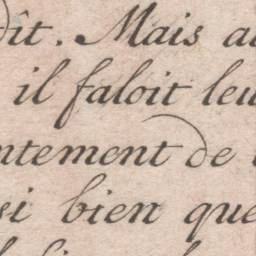 dît. Mais au
il faloit leu
ntement de
si bien que